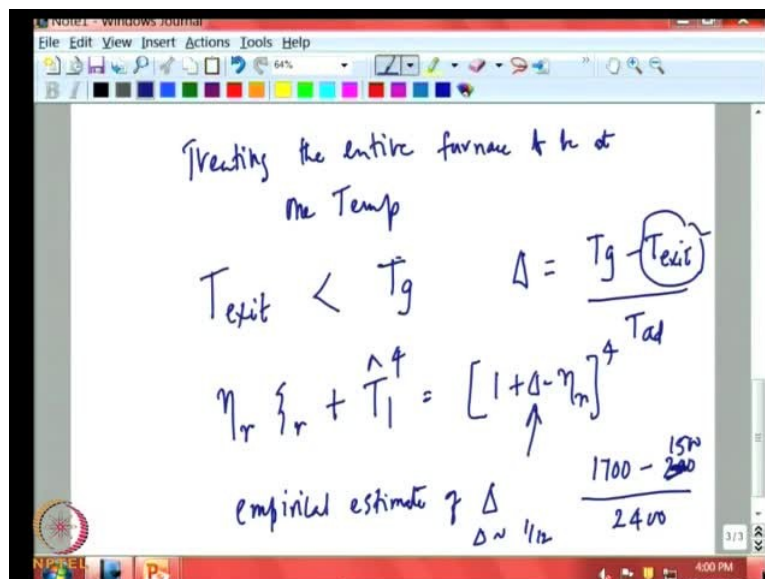 Note1 - Windows Journal
File Edit View Insert Actions Tools Help
64%
B I
Treating the entire furnace to be at
one Temp
T_exit < T_g Δ = (T_g - T_exit) / T_ad
η_r ξ_r + T̂_1^4 = [1 + Δ - η_r]^4
empirical estimate of Δ (1700 - 1500) / 2400
Δ ~ 1/12
3/3
NPTEL
4:00 PM